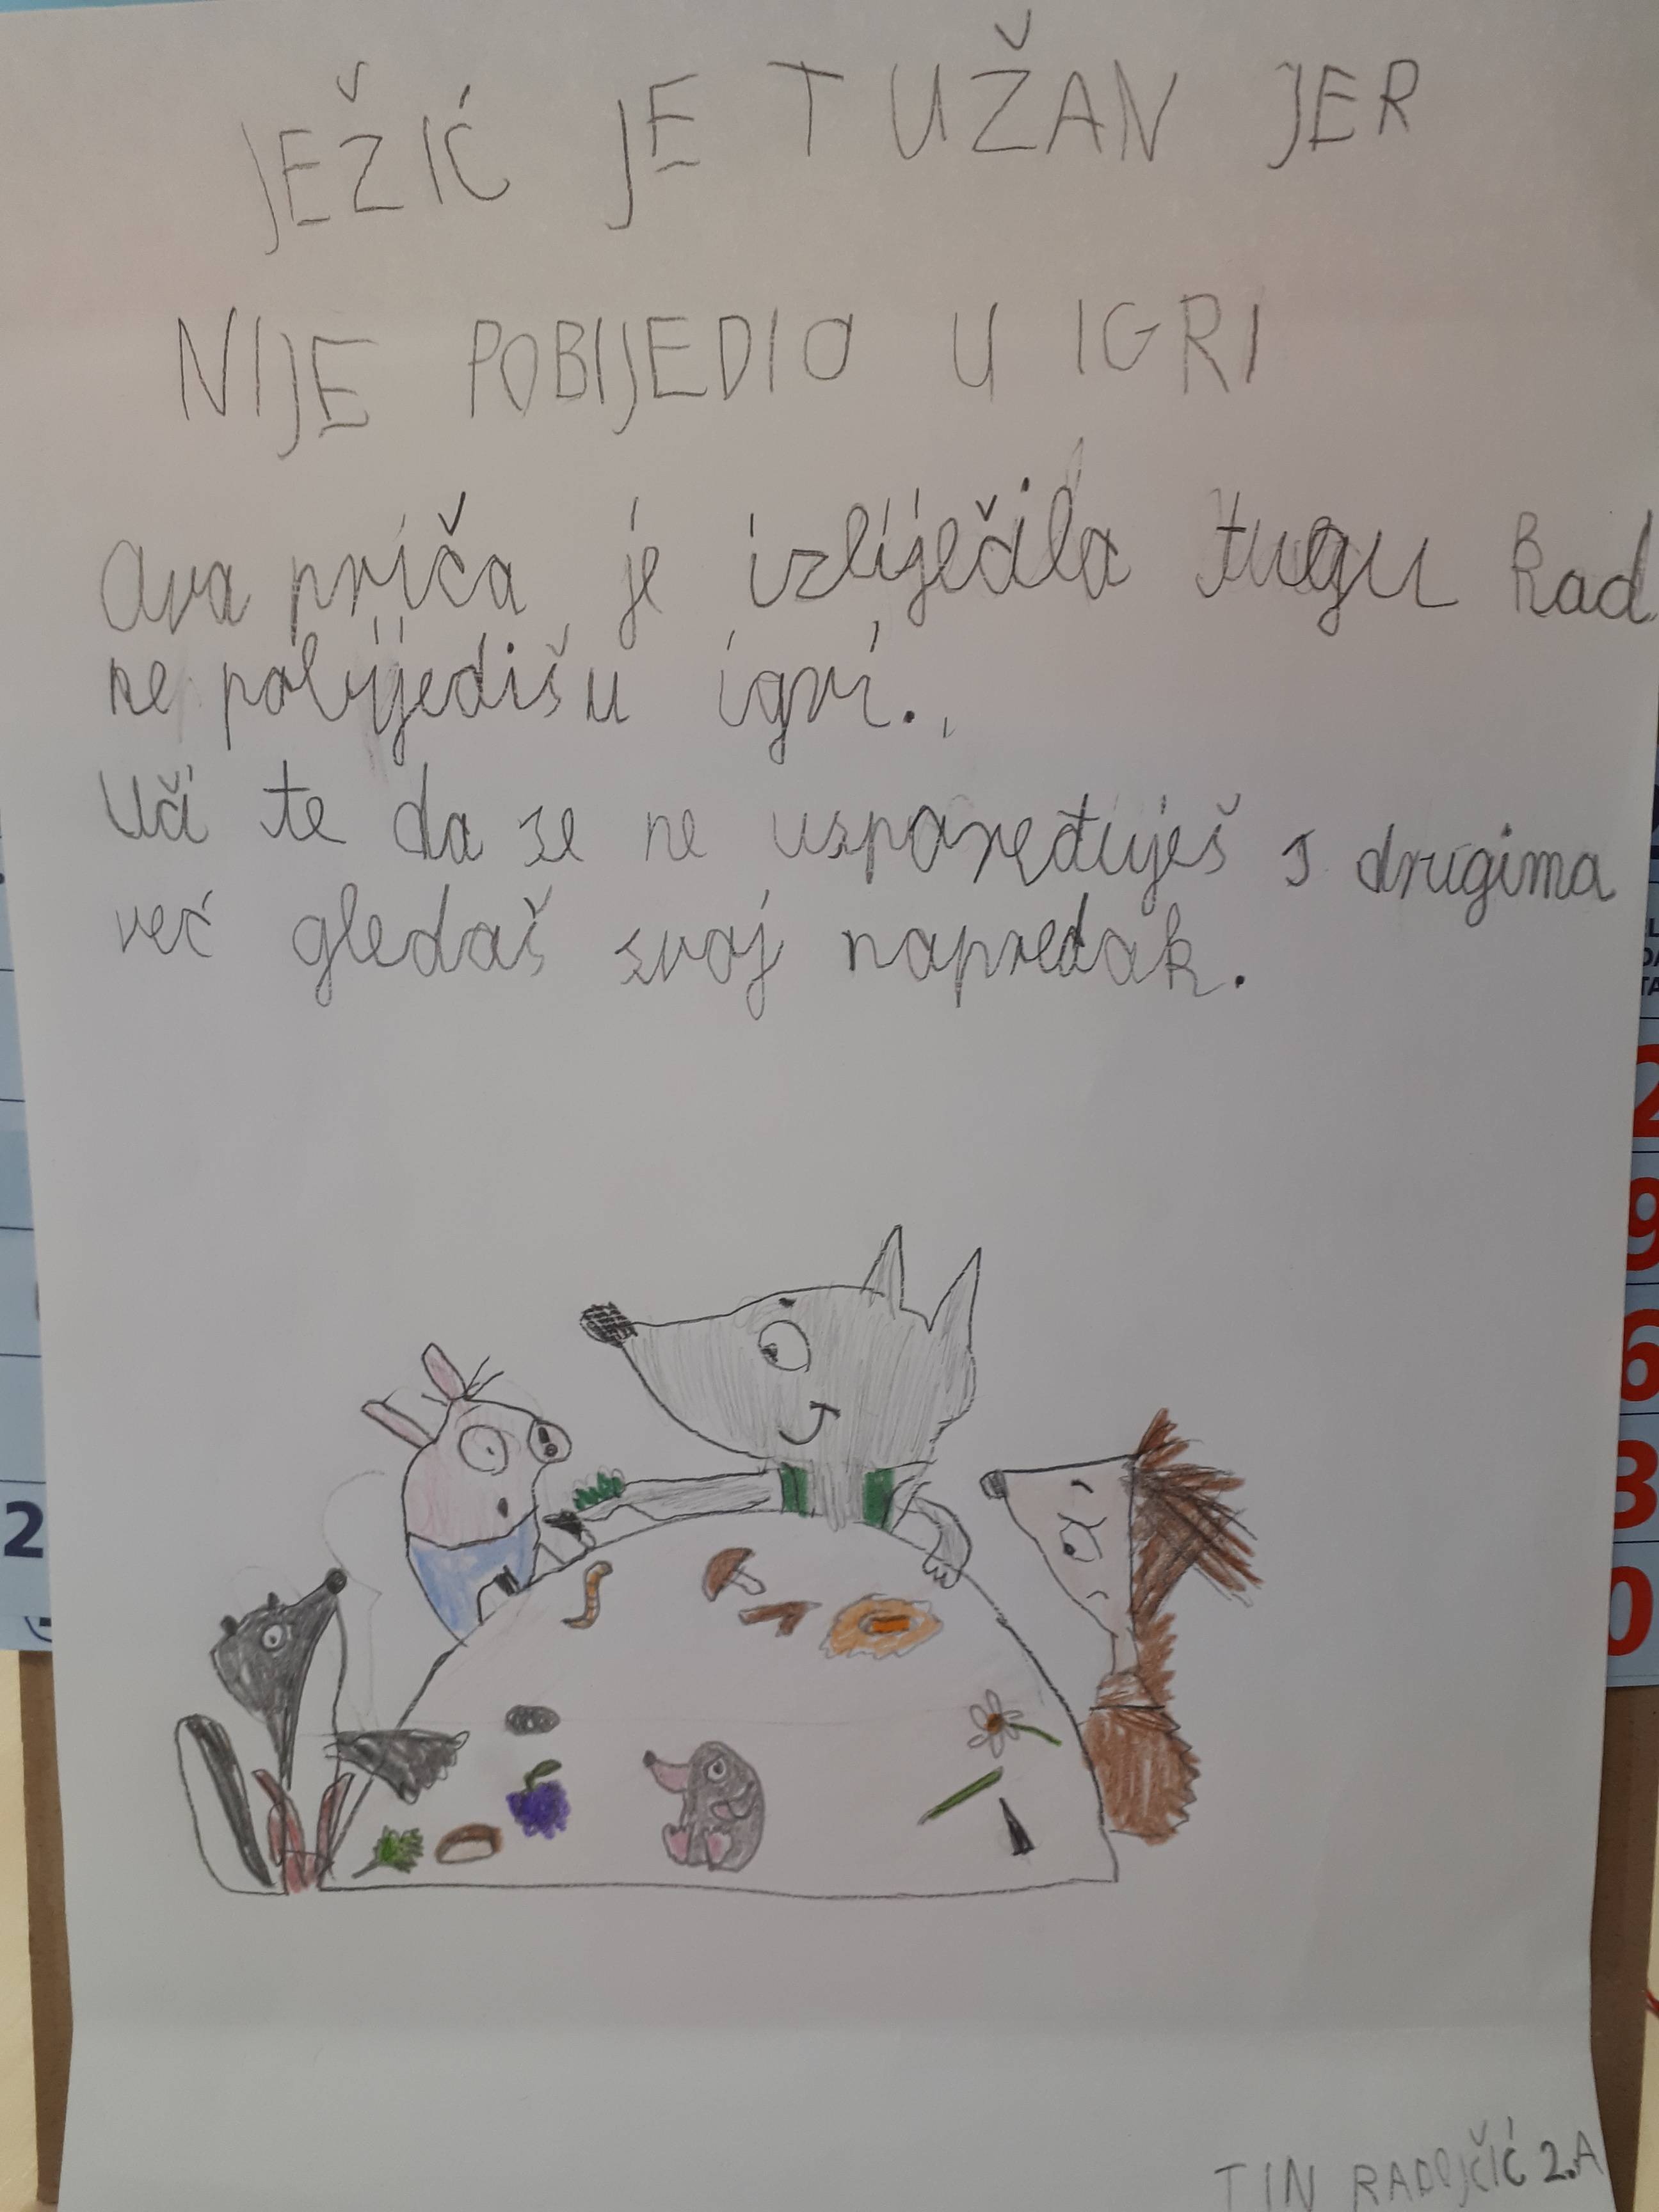 JEŽIĆ JE TUŽAN JER
NIJE POBIJEDIO U IGRI
Ova priča je izliječila tugu kad
ne pobijediš u igri.
Uči te da se ne uspoređuješ s drugima
već gledaš svoj napredak.
2
2
9
6
3
0
TIN RADEJČIĆ 2.A